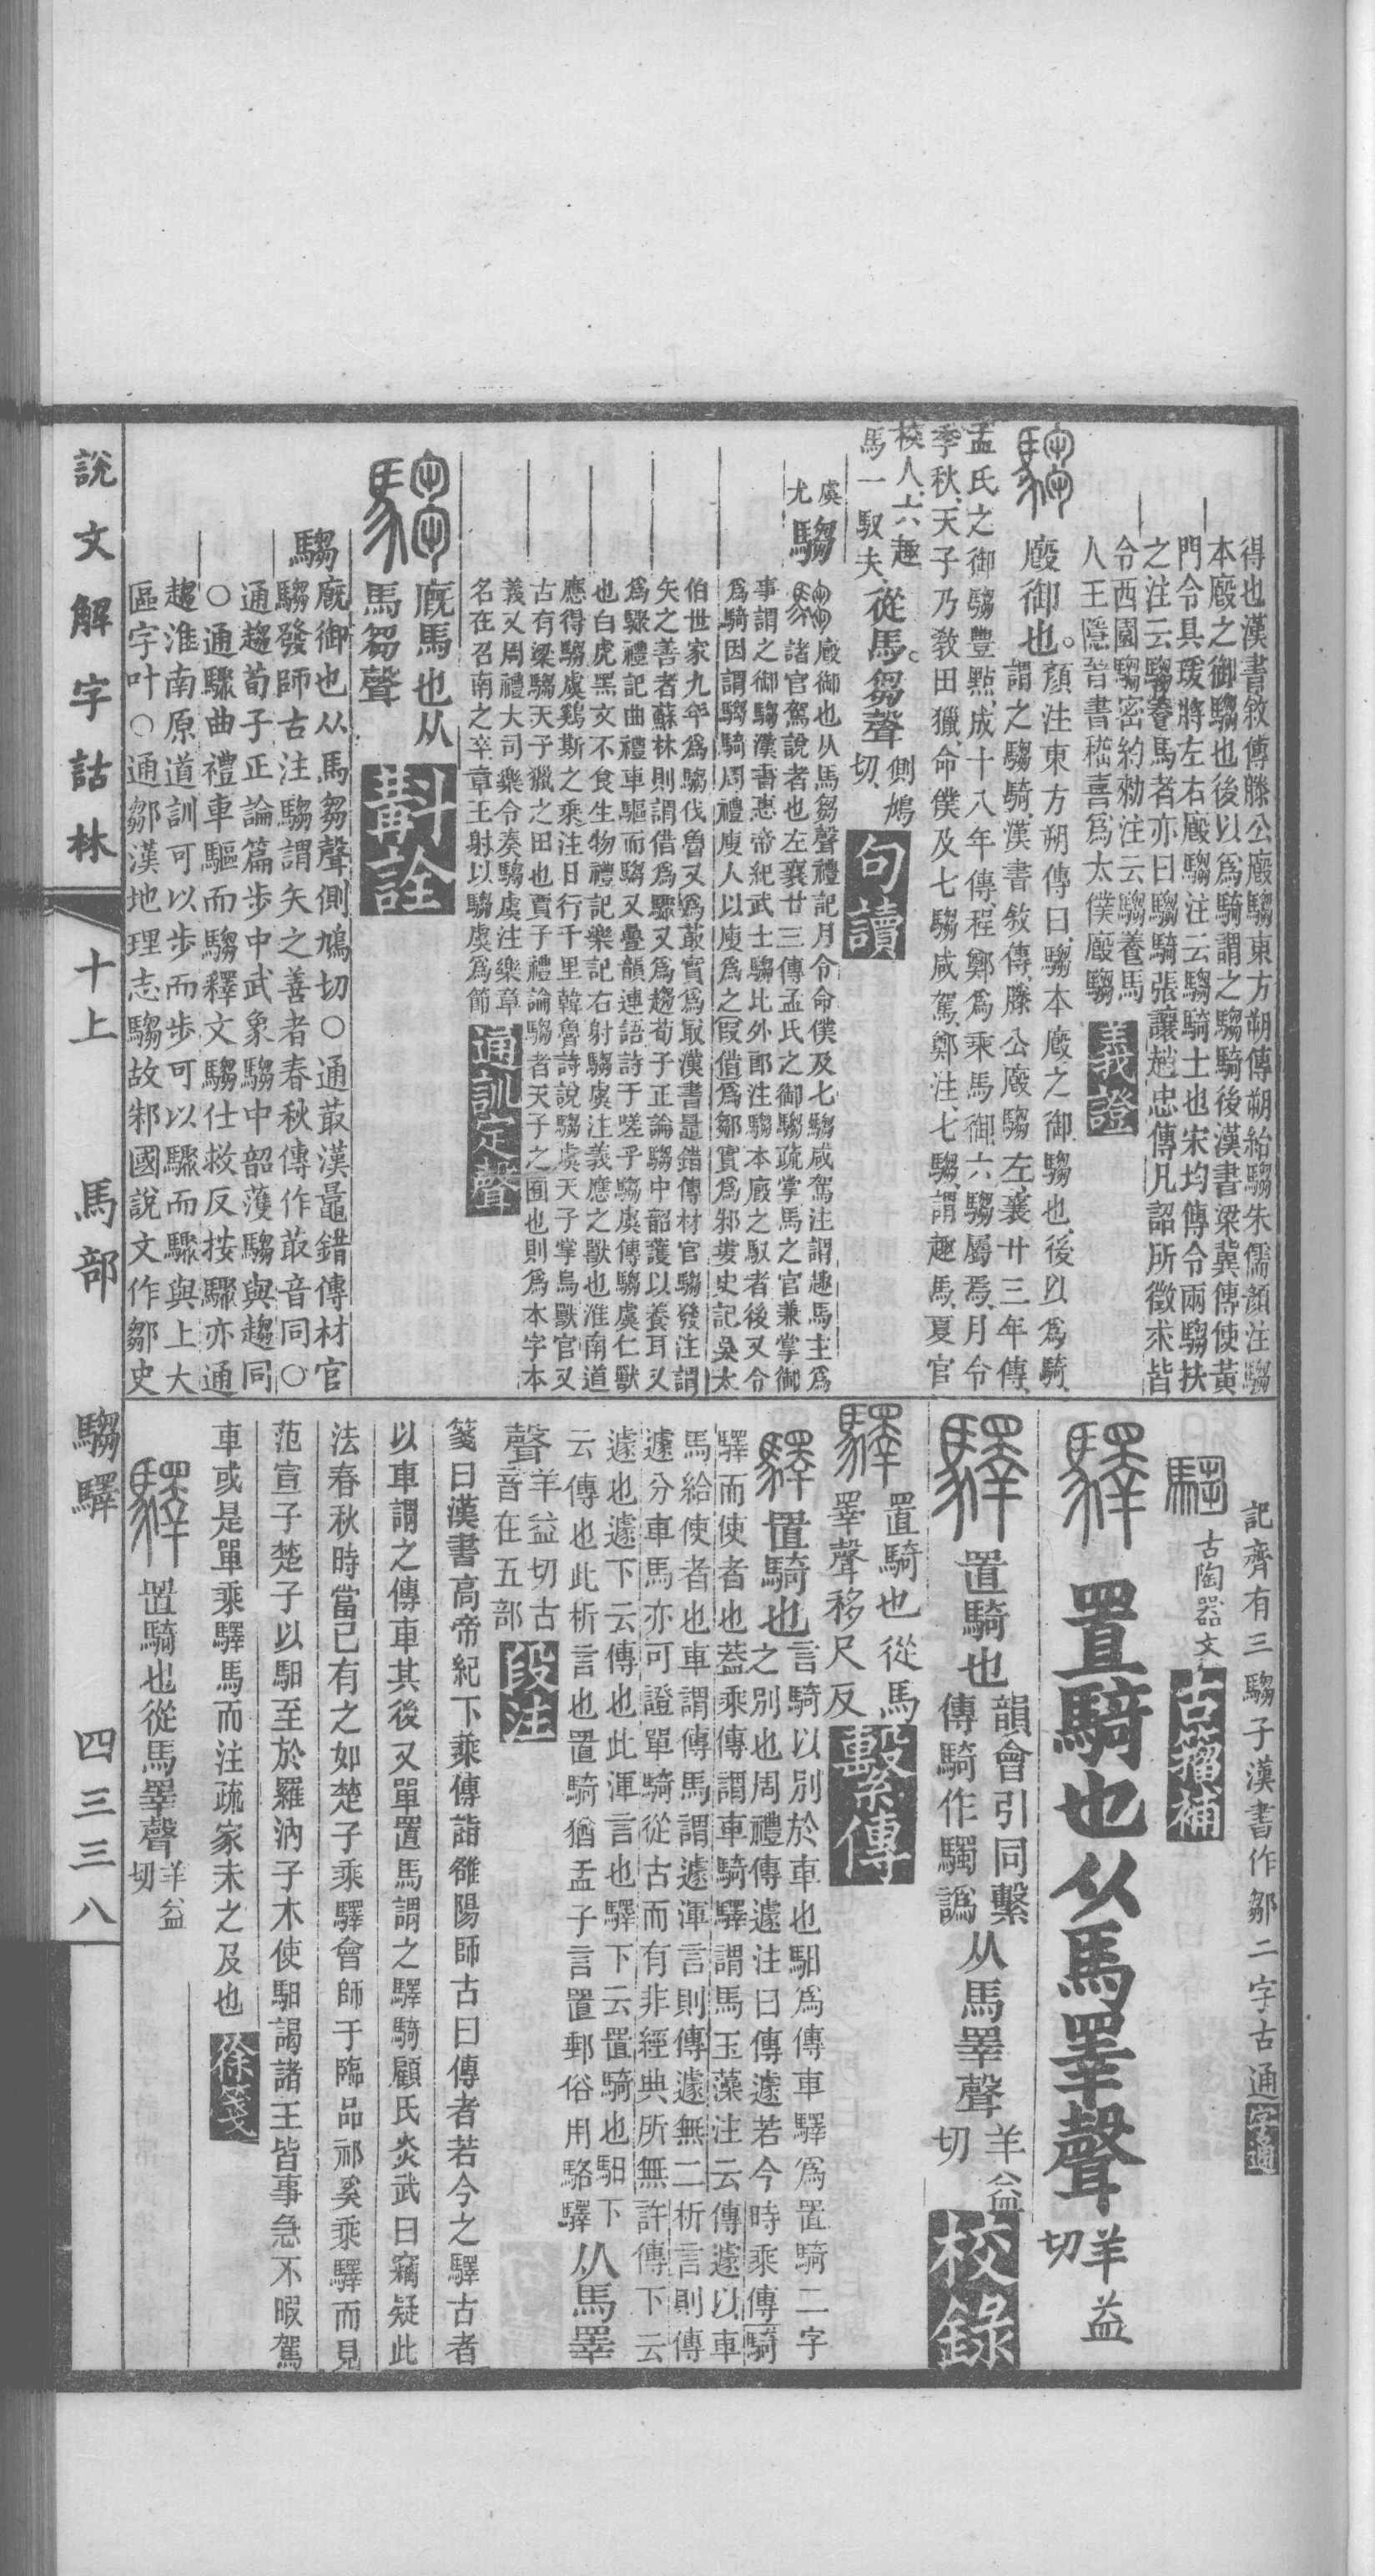 得也漢書敘傳滕公廄騶東方朔傳朔紿騶朱儒顏注騶
本廄之御騶也後以爲騎謂之騶騎後漢書梁冀傳使黃
門令具瑗將左右廄騶注云騶騎士也宋均傳令兩騶扶
之注云騶養馬者亦曰騶騎張讓趙忠傳凡詔所徵求皆
令西園騶密約勑注云騶養馬
人王隱晉書嵇喜爲太僕廄騶
義證
廄御也。
顏注東方朔傳曰、騶本廄之御騶也、後以爲騎、
謂之騶騎、漢書敘傳、滕公廄騶、左襄廿三年傳、
孟氏之御騶豐點、成十八年傳、程鄭爲乘馬御、六騶屬焉、月令
季秋、天子乃教田獵、命僕及七騶咸駕、鄭注、七騶謂趣馬、夏官
校人、六趣
馬一馭夫、
從馬。芻聲
側鳩
切、
句讀
虞
尤
騶
廄御也从馬芻聲禮記月令命僕及七騶咸駕注謂趣馬主爲
諸官駕說者也左襄廿三傳孟氏之御騶疏掌馬之官兼掌御
事謂之御騶漢書惠帝紀武士騶比外郎注騶本廄之馭者後又令
爲騎因謂騶騎周禮廋人以廋爲之假借爲鄒實爲邾婁史記吳太
伯世家九年爲騶伐魯又爲菆實爲取漢書鼂錯傳材官騶發注謂
矢之善者蘇林則謂借爲驟又爲趨荀子正論騶中韶護以養耳又
爲驟禮記曲禮車驅而騶又疊韻連語詩于嗟乎騶虞傳騶虞仁獸
也白虎黑文不食生物禮記樂記右射騶虞注義應之獸也淮南道
應得騶虞雞斯之乘注日行千里韓魯詩說騶虞天子掌鳥獸官又
古有梁騶天子獵之田也賈子禮論騶者天子之囿也則爲本字本
義又周禮大司樂令奏騶虞注樂章
名在召南之卒章王射以騶虞爲節
通訓定聲
廄馬也从
馬芻聲
斠詮
騶
廄御也从馬芻聲側鳩切〇通菆漢鼂錯傳材官
騶發師古注騶謂矢之善者春秋傳作菆音同〇
通趨荀子正論篇步中武象騶中韶濩騶與趨同
〇通驟曲禮車驅而騶釋文騶仕救反按驟亦通
趨淮南原道訓可以步而步可以驟而驟與上大
區字叶〇通鄒漢地理志騶故邾國說文作鄒史
記齊有三騶子漢書作鄒二字古通
字通
古陶器文
古籀補
置騎也从馬睪聲
羊益
切
置騎也
韻會引同繫
傳騎作驛譌
从馬睪聲
羊益
切
校錄
置騎也從馬
睪聲移尺反
繫傳
置騎也
言騎以別於車也馹爲傳車驛爲置騎二字
之別也周禮傳遽注曰傳遽若今時乘傳騎
驛而使者也蓋乘傳謂車騎驛謂馬玉藻注云傳遽以車
馬給使者也車謂傳馬謂遽渾言則傳遽無二析言則傳
遽分車馬亦可證單騎從古而有非經典所無許傳下云
遽也遽下云傳也此渾言也驛下云置騎也馹下
云傳也此析言也置騎猶孟子言置郵俗用駱驛
从馬睪
聲
羊益切古
音在五部
段注
箋曰漢書高帝紀下乘傳詣雒陽師古曰傳者若今之驛古者
以車謂之傳車其後又單置馬謂之驛騎顧氏炎武曰竊疑此
法春秋時當已有之如楚子乘驛會師于臨品祁奚乘驛而見
范宣子楚子以馹至於羅汭子木使馹謁諸王皆事急不暇駕
車或是單乘驛馬而注疏家未之及也
徐箋
置騎也從馬睪聲
羊益
切
說文解字詁林
十上
馬部
騶驛
四三三八